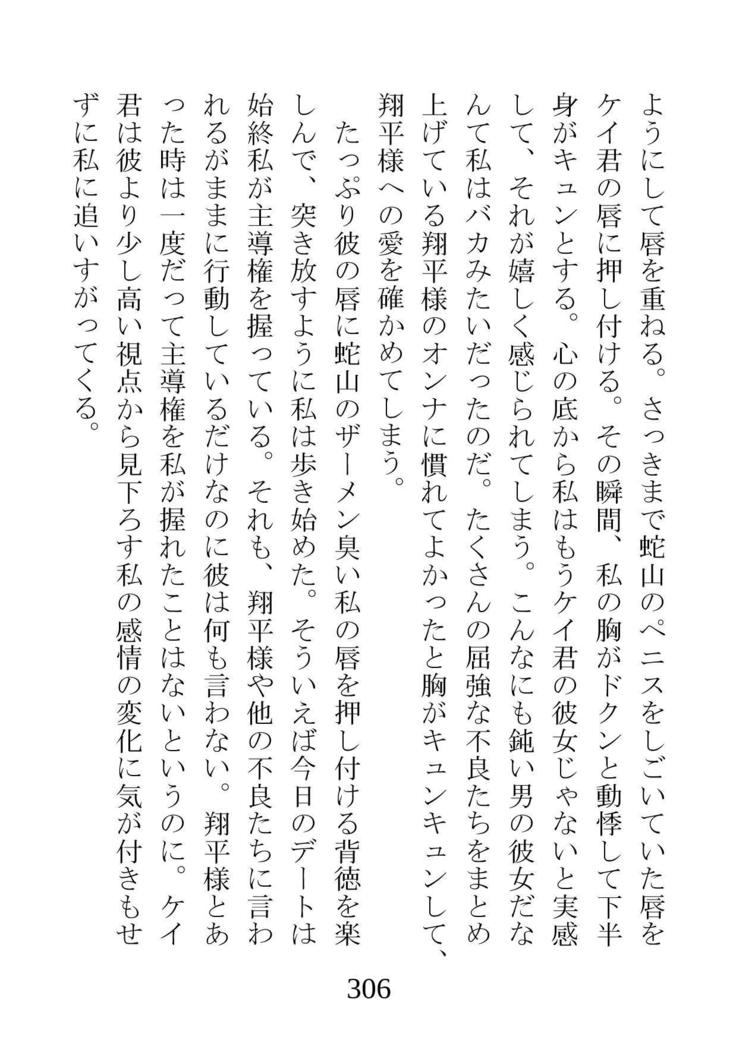 ようにして唇を重ねる。さっきまで蛇山のペニスをしごいていた唇を
ケイ君の唇に押し付ける。その瞬間、私の胸がドクンと動悸して下半
身がキュンとする。心の底から私はもうケイ君の彼女じゃないと実感
して、それが嬉しく感じられてしまう。こんなにも鈍い男の彼女だな
んて私はバカみたいだったのだ。たくさんの屈強な不良たちをまとめ
上げている翔平様のオンナに慣れてよかったと胸がキュンキュンして、
翔平様への愛を確かめてしまう。
　たっぷり彼の唇に蛇山のザーメン臭い私の唇を押し付ける背徳を楽
しんで、突き放すように私は歩き始めた。そういえば今日のデートは
始終私が主導権を握っている。それも、翔平様や他の不良たちに言わ
れるがままに行動しているだけなのに彼は何も言わない。翔平様とあ
った時は一度だって主導権を私が握れたことはないというのに。ケイ
君は彼より少し高い視点から見下ろす私の感情の変化に気が付きもせ
ずに私に追いすがってくる。
306